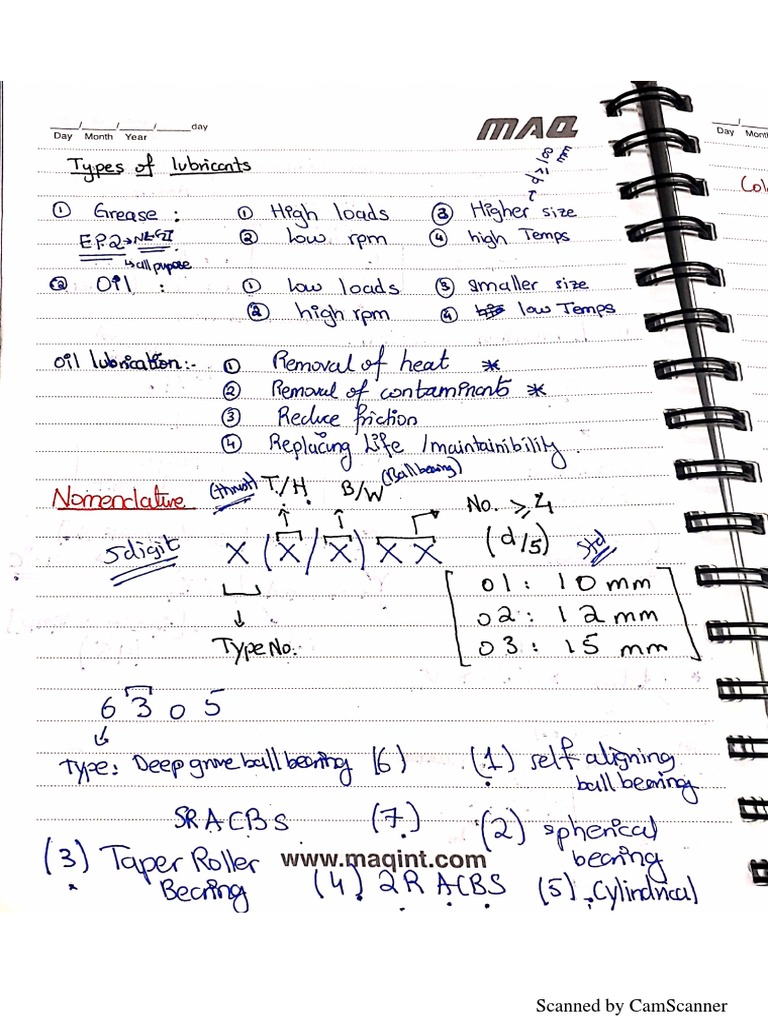 ___/___/___/_____day
Day Month Year
MAQ
Day Month
Types of lubricants
Col
① Grease : ① High loads ③ Higher size
EP2→NLGI ② Low rpm ④ high Temps
↳ all pupose
② Oil : ① low loads ③ smaller size
② high rpm ④ low Temps
Oil lubrication:- ① Removal of heat *
② Removal of contaminants *
③ Reduce friction
④ Replacing Life /maintainibility.
Nomenclative (thrust) T./H. B/W (Ball bearing) No. ≥ 4
5digit X (X/X) X X (d/5) Std
01 : 10 mm
02 : 12 mm
03 : 15 mm
Type No.
6 3 0 5
Type: Deep grove ball bearing (6) (1) self aligning
ball bearing
SRACBS (7) (2) spherical
bearing
(3) Taper Roller
Bearing
www.maqint.com
(4) 2R ACBS (5) Cylindrical
Scanned by CamScanner